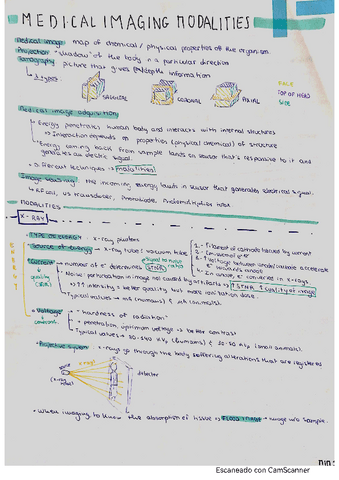 MEDICAL IMAGING MODALITIES
Medical image: map of chemical / physical properties of the organism.
Projection: "shadow" of the body in a particular direction
Tomography: picture that gives depth information
3 types:
FACE
TOP OF HEAD
SIDE
SAGITTAL CORONAL AXIAL
Medical image acquisition
Energy penetrates human body and interacts with internal structures
Interaction depends on properties (physical/chemical) of structure
Energy coming back from sample lands on sensor that's responsive to it and
generates an electric signal.
Different techniques → modalities
Image reading: the incoming energy lands in sensor that generates electrical signal.
RF coil, us transducer, photodiode, photomultiplier tube
MODALITIES
X-RAY
ENERGY
TYPE OF ENERGY: x-ray photons
Source of energy: x-ray tube / vacuum tube
1- Filament of cathode heated by current
Current → number of e⁻ determines SNR
signal to noise ratio
quality (SNR)
Noise: perturbation in image not caused by artifacts
↑↑ intensity = better quality but more ionisation dose.
↑ SNR ↑ Quality of image
Typical values → mA (humans) & μA (animals).
Voltage
contrast
"hardness of radiation"
+ penetration, optimum voltage → better contrast
Typical values → 30-140 kV (humans) & 30-50 kVp (small animals).
Projective system: x-rays go through the body suffering alterations that are registered
source
(x-ray tube)
detector
When imaging to know the absorption of tissue → FLOOD IMAGE → image w/o sample.
Escaneado con CamScanner